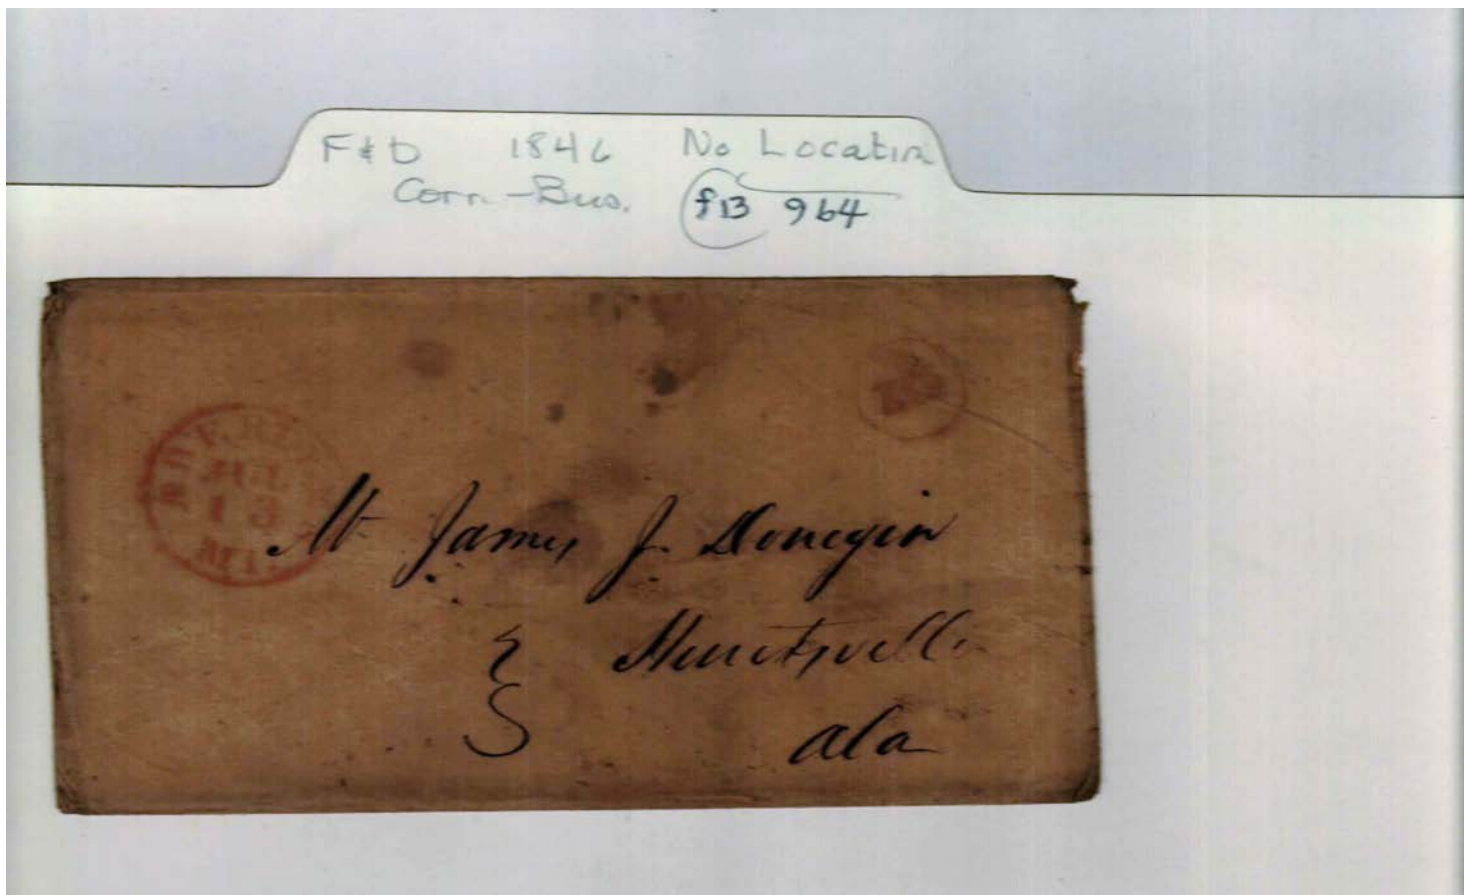 F & D 1846 No Location
Corr. - Bus. f13 964
JUL
13
Mr James J. Donegin
Huntsville
Ala